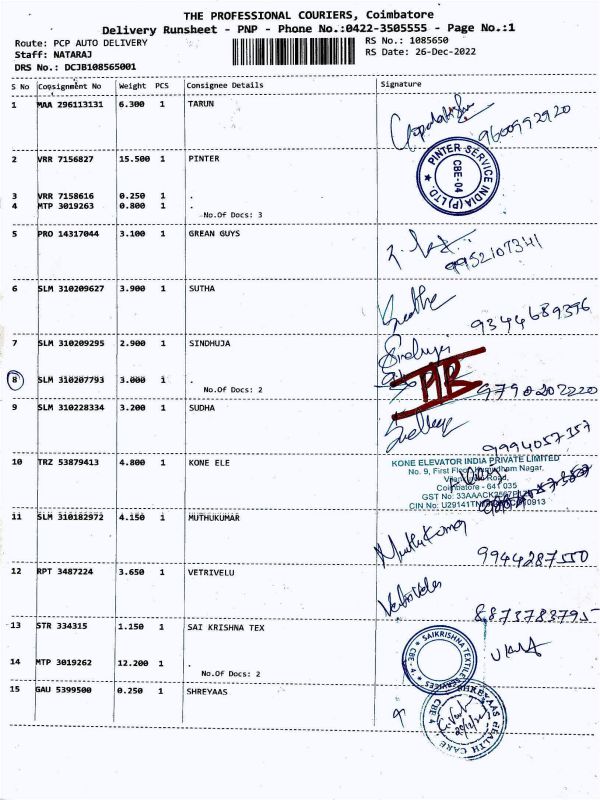 THE PROFESSIONAL COURIERS, Coimbatore
Delivery Runsheet - PNP - Phone No.:0422-3505555 - Page No.:1
Route: PCP AUTO DELIVERY
RS No.: 1085650
Staff: NATARAJ
RS Date: 26-Dec-2022
DRS No.: DCJB108565001
S No Consignment No Weight PCS Consignee Details Signature
1 MAA 296113131 6.300 1 TARUN
9600992920
2 VRR 7156827 15.500 1 PINTER
PINTER SERVICE INDIA(P)LTD. ★
CBE-04
3 VRR 7158616 0.250 1 .
4 MTP 3019263 0.800 1 .
No.Of Docs: 3
5 PRO 14317044 3.100 1 GREAN GUYS
9952107341
6 SLM 310209627 3.900 1 SUTHA
Sudha
9344689396
7 SLM 310209295 2.900 1 SINDHUJA
Sindhuja
8 SLM 310207793 3.000 1 .
No.Of Docs: 2
9790202220
9 SLM 310228334 3.200 1 SUDHA
9994057357
10 TRZ 53879413 4.800 1 KONE ELE
KONE ELEVATOR INDIA PRIVATE LIMITED
No. 9, First Floor, Nagar,
Road,
Coimbatore - 641 035
GST No: 33AAACK
CIN No: U29141TN 0913
11 SLM 310182972 4.150 1 MUTHUKUMAR
MuthuKumar
9944287550
12 RPT 3487224 3.650 1 VETRIVELU
Vetrivelu
8873783795
13 STR 334315 1.150 1 SAI KRISHNA TEX
★ SAIKRISHNA TEXTILE SERVICES
CBE-4
14 MTP 3019262 12.200 1 .
No.Of Docs: 2
15 GAU 5399500 0.250 1 SHREYAAS
SHREYAAS HEALTH CARE
CBE 4